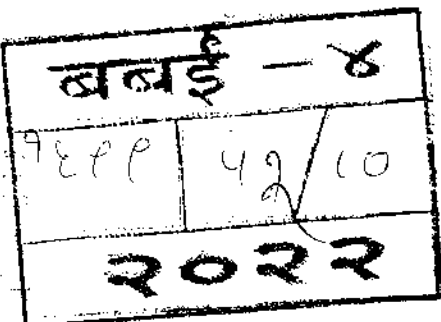 बबई - ४
१६११ ५२/८०
२०२२